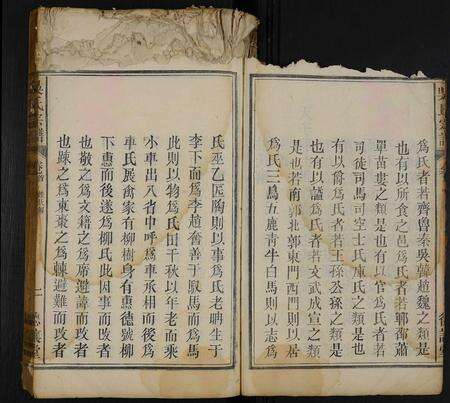 為氏者若齊魯秦吳韓趙魏之類是
也有以所食之邑為氏者若鄆鄫蕭
單苗裴之類是也有以官為氏者若
司徒司馬司空士氏庫氏之類是也
有以爵為氏者若王孫公孫之類
也有以謚為氏者若文武成宣之類
是也若南郭北郭東門西門則以居
為氏三烏五鹿青牛白馬則以志為
氏巫乙匠陶則以事為氏老聃生于
李下而為李趙奢善于馭馬而為馬
此則以物為氏田千秋以年老而乘
小車出入省中呼為車丞相而後為
車氏展禽家有柳樹身有惠德號柳
下惠而後遂為柳氏此因事而改者
也敬之為文籍之為席避諱而改者
也踈之為束棗之為棘避難而改者